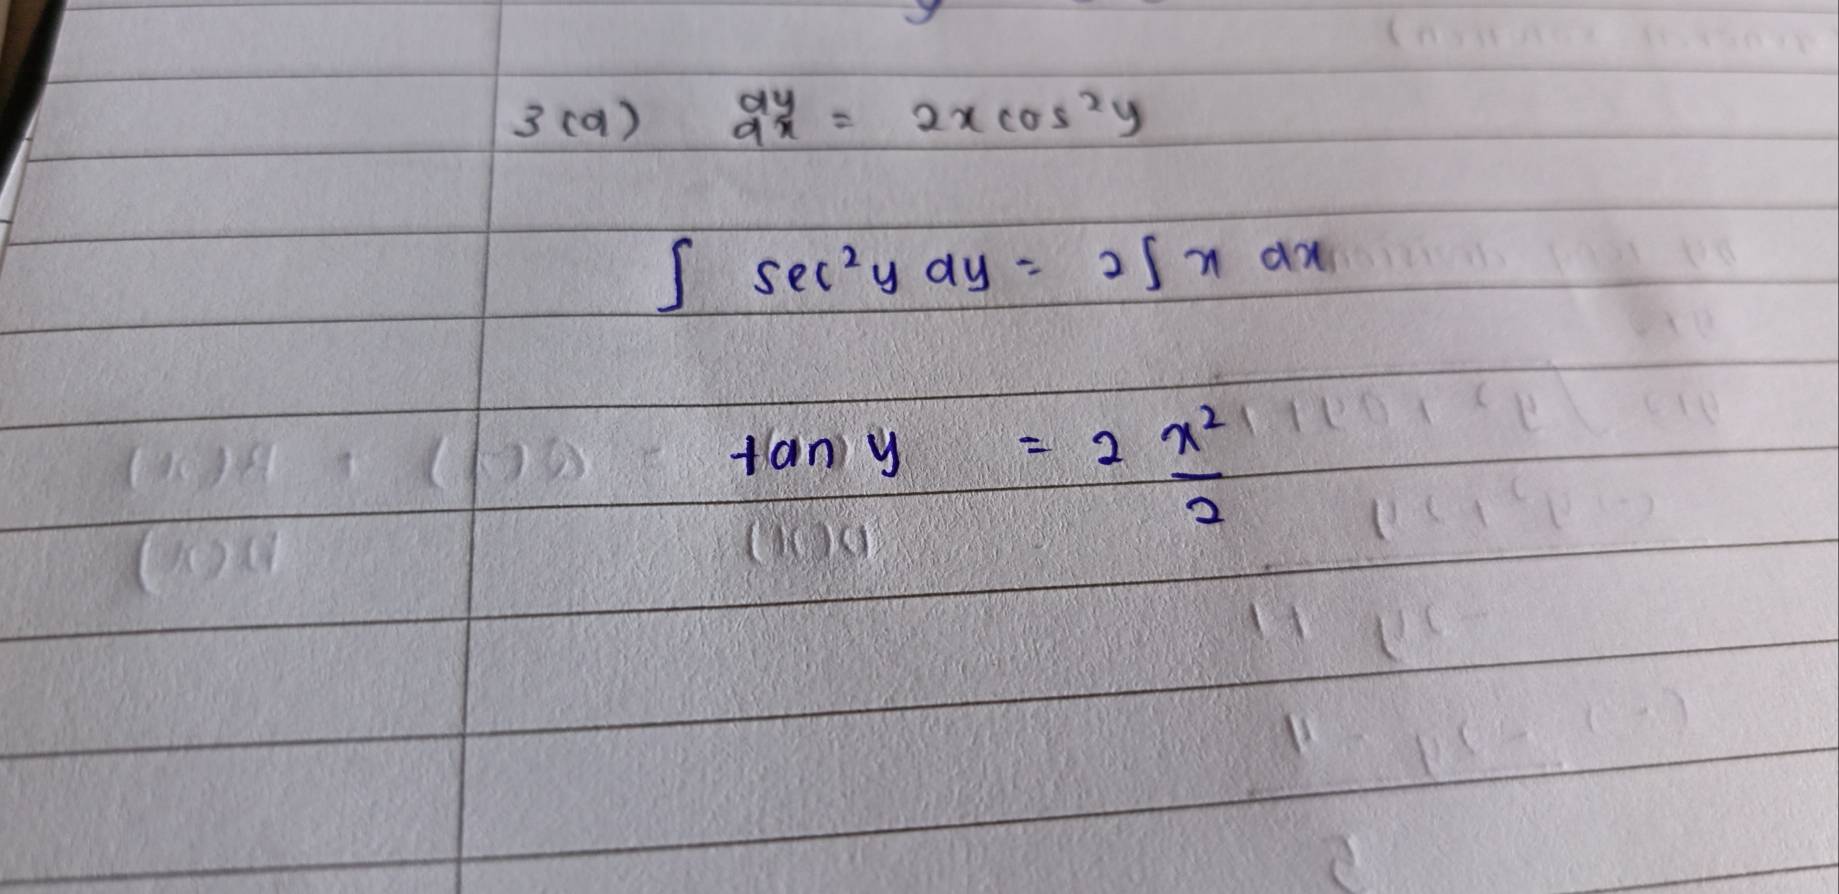 3(a) dy/dx = 2x cos²y
∫ sec²y dy = 2∫ x dx
tan y = 2 x²/2